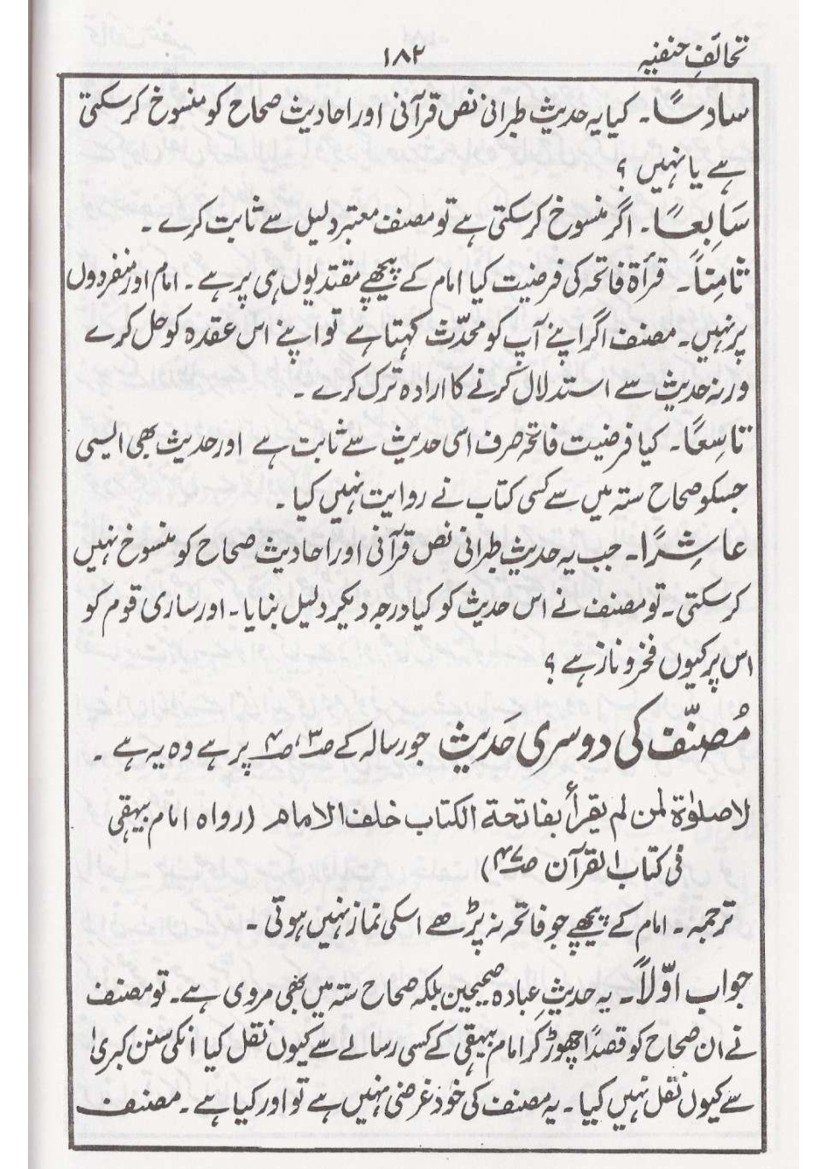 تحائفِ حنفیہ
۱۸۲
سادسًا۔ کیا یہ حدیث طبرانی نص قرآنی اور احادیث صحاح کو منسوخ کرسکتی
ہے یا نہیں ؟
سَابِعًا۔ اگر منسوخ کرسکتی ہے تو مصنف معتبر دلیل سے ثابت کرے۔
ثامِناً۔ قرأۃ فاتحہ کی فرضیت کیا امام کے پیچھے مقتدیوں ہی پر ہے۔ امام اور منفردوں
پر نہیں۔ مصنف اگر اپنے آپ کو محدّث کہتا ہے تو اپنے اس عقدہ کو حل کرے
ورنہ حدیث سے استدلال کرنے کا ارادہ ترک کرے۔
تاسِعًا۔ کیا فرضیت فاتحہ صرف اسی حدیث سے ثابت ہے اور حدیث بھی ایسی
جسکو صحاح ستہ میں سے کسی کتاب نے روایت نہیں کیا۔
عاشِرًا۔ جب یہ حدیثِ طبرانی نص قرآنی اور احادیث صحاح کو منسوخ نہیں
کرسکتی۔ تو مصنف نے اس حدیث کو کیا درجہ دیکر دلیل بنایا۔ اور ساری قوم کو
اس پر کیوں فخر و ناز ہے ؟
مُصنّف کی دوسری حَدیث جو رسالہ کے ص۳، ص۴ پر ہے وہ یہ ہے۔
لاصلوٰۃ لمن لم یقرأ بفاتحۃ الکتاب خلف الامام (رواہ امام بیہقی
فی کتاب القرآن ص۴۷)
ترجمہ۔ امام کے پیچھے جو فاتحہ نہ پڑھے اسکی نماز نہیں ہوتی۔
جواب اوّلاً۔ یہ حدیثِ عبادہ صحیحین بلکہ صحاح ستہ میں بھی مروی ہے۔ تو مصنف
نے ان صحاح کو قصدًا چھوڑ کر امام بیہقی کے کسی رسالے سے کیوں نقل کیا انکی سنن کبریٰ
سے کیوں نقل نہیں کیا۔ یہ مصنف کی خود غرضی نہیں ہے تو اور کیا ہے۔ مصنف